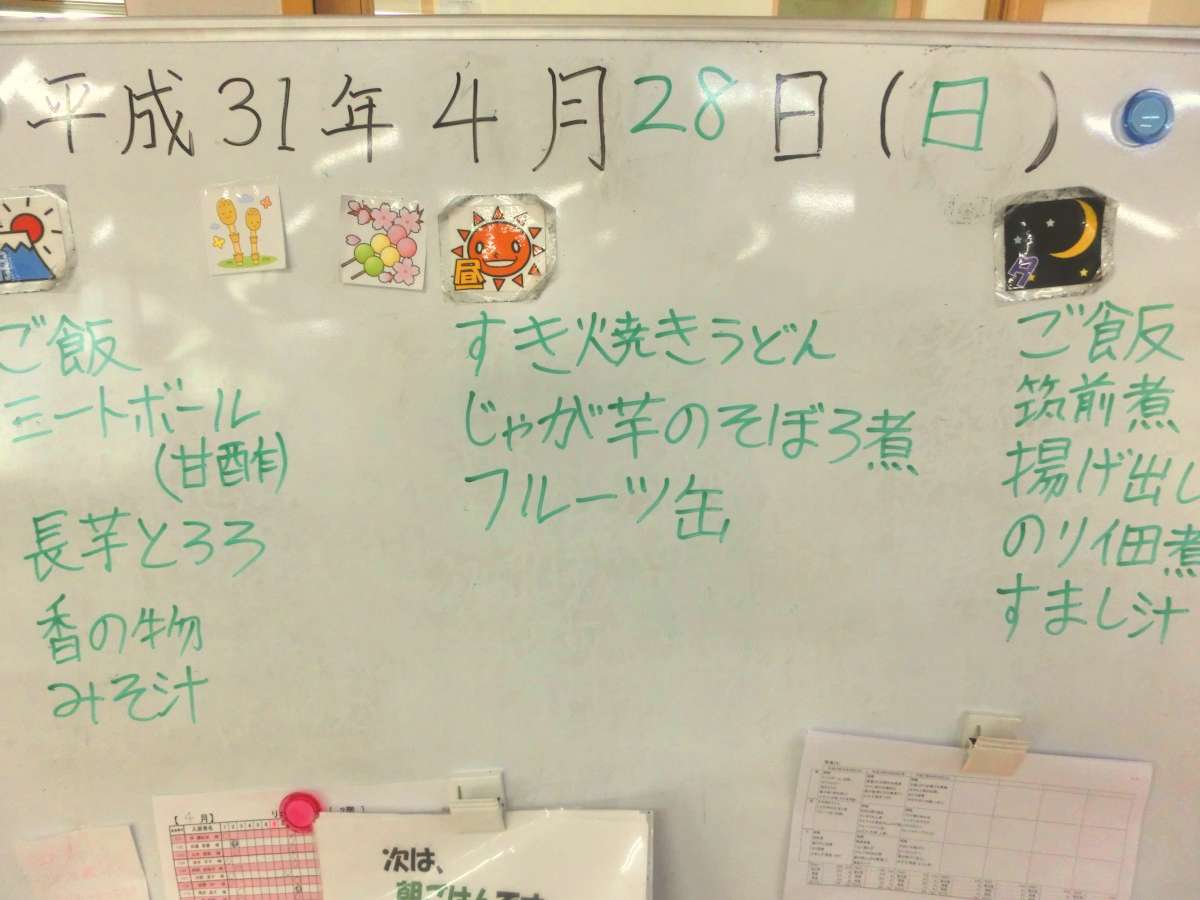 平成31年4月28日(日)
ご飯
ミートボール
(甘酢)
長芋とろろ
香の物
みそ汁
昼
すき焼きうどん
じゃが芋のそぼろ煮
フルーツ缶
夕
ご飯
筑前煮
揚げ出し
のり佃煮
すまし汁
【4月】
次は、
朝ごはんです